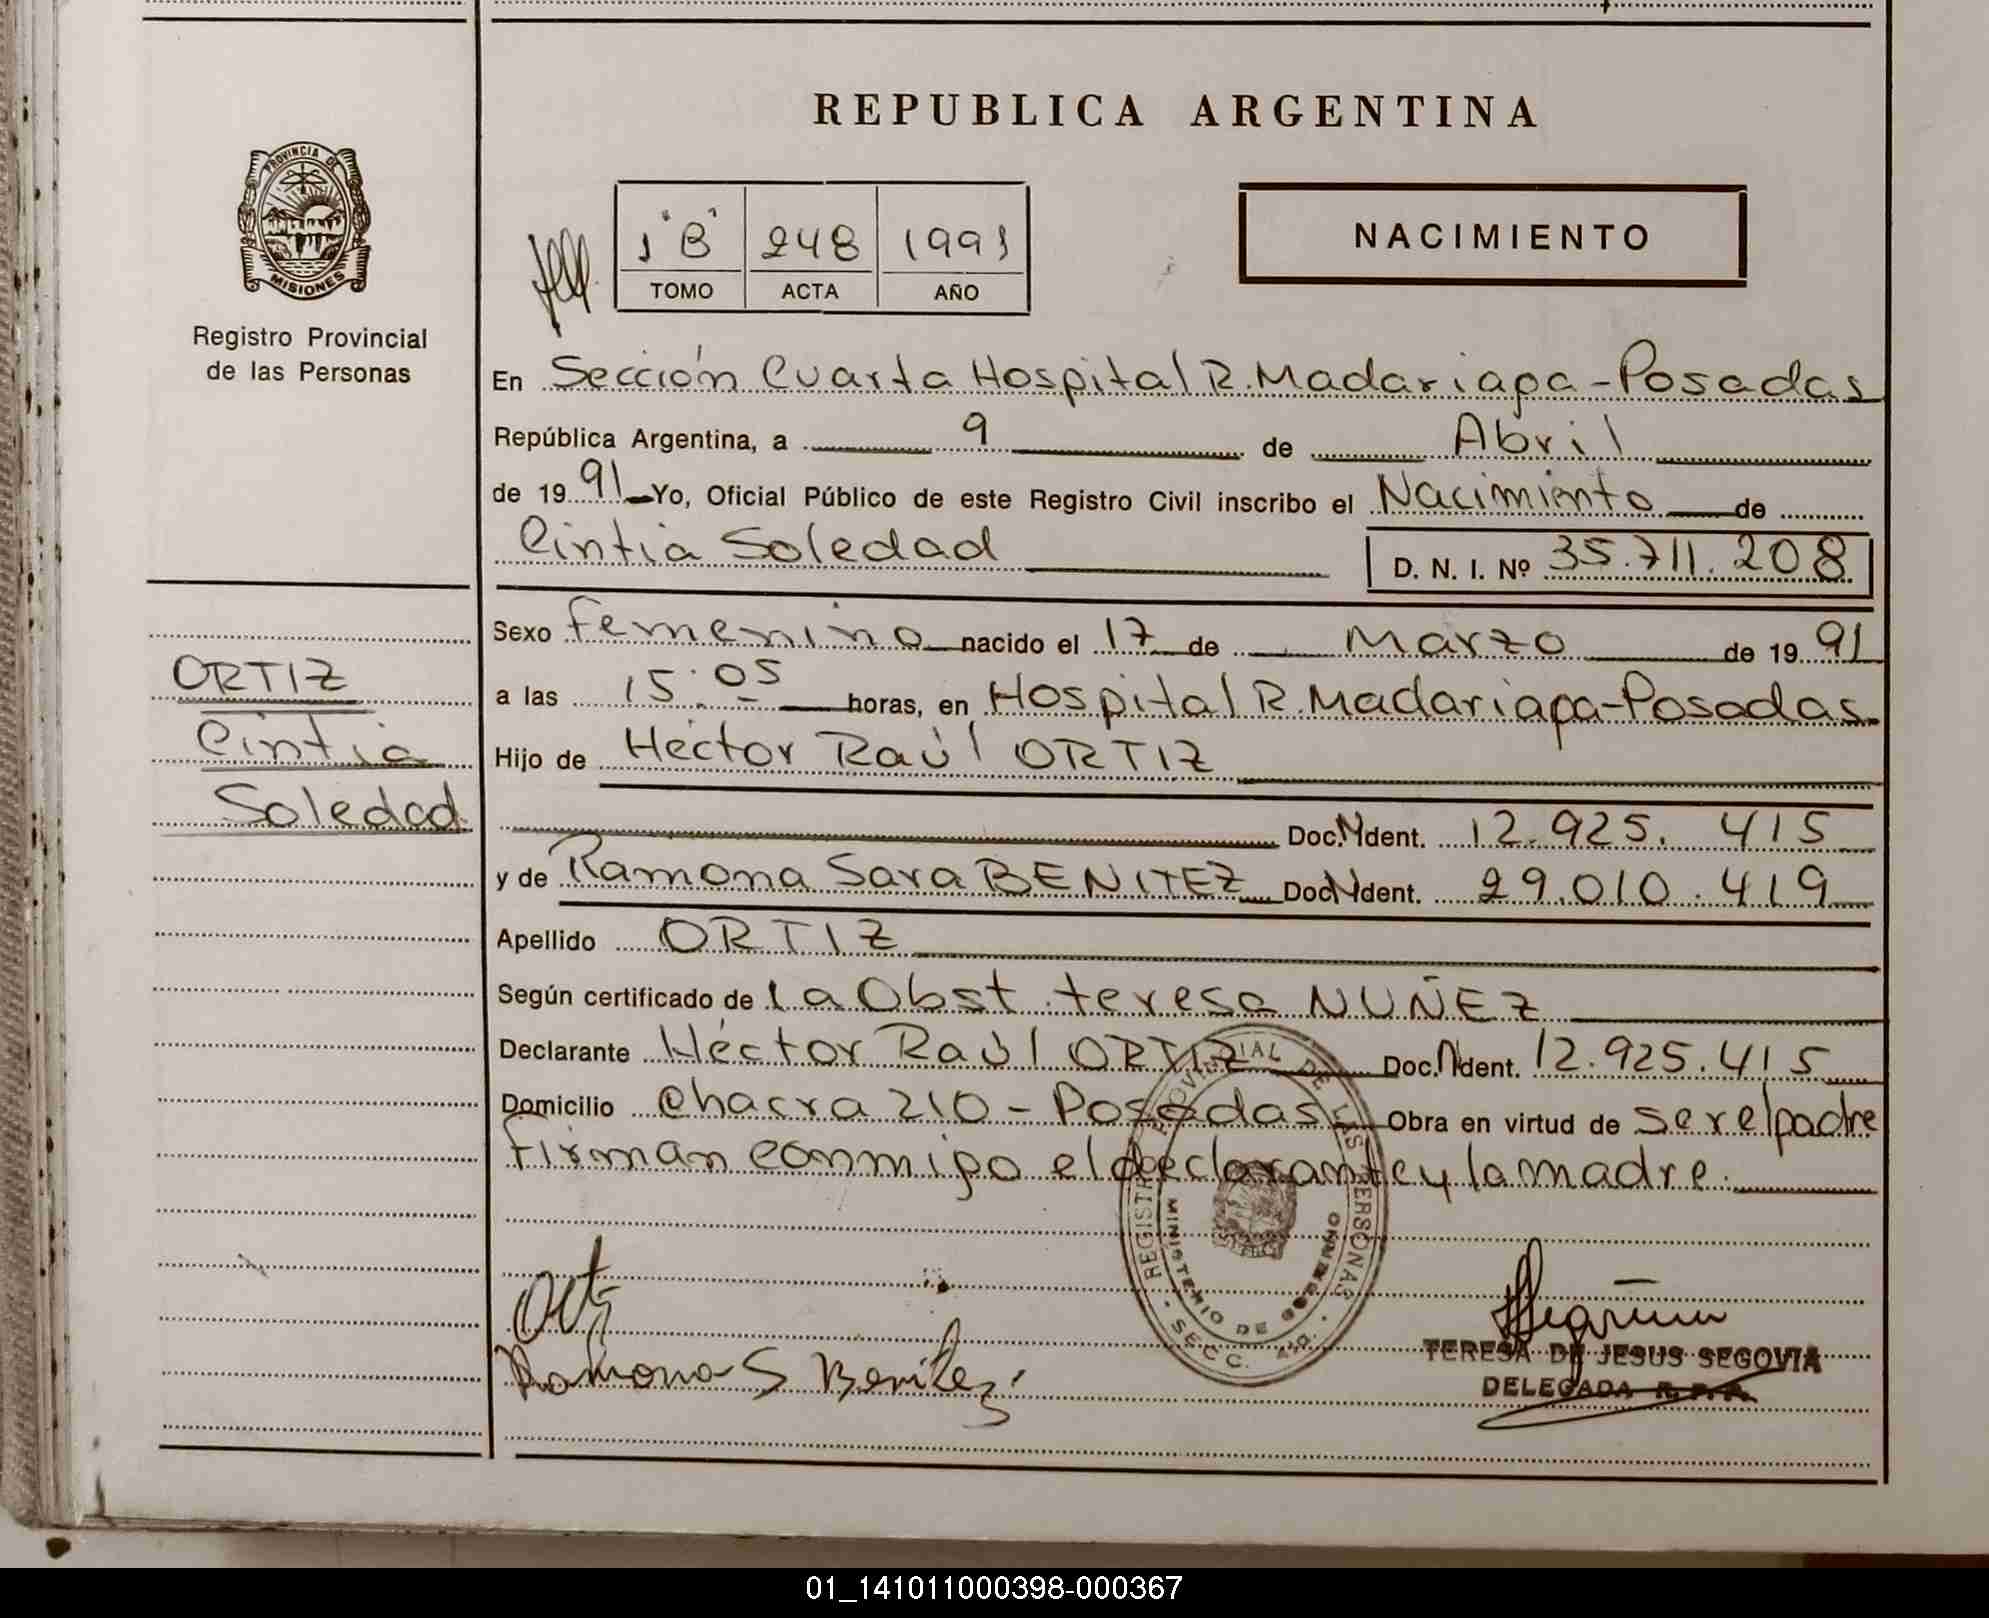 REPUBLICA ARGENTINA
PROVINCIA DE
MISIONES
Registro Provincial
de las Personas
1 "B" 248 1991
TOMO ACTA AÑO
NACIMIENTO
En Sección Cuarta Hospital R. Madariaga - Posadas
República Argentina, a 9 de Abril
de 19 91 Yo, Oficial Público de este Registro Civil inscribo el Nacimiento de
Cintia Soledad D. N. I. Nº 35.711.208
Sexo femenino nacido el 17 de Marzo de 19 91
a las 15:05 horas, en Hospital R. Madariaga - Posadas.
Hijo de Héctor Raúl ORTIZ
Doc. N Ident. 12.925.415
y de Ramona Sara BENITEZ Doc. N Ident. 29.010.419
Apellido ORTIZ
Según certificado de la Obst. teresa NUÑEZ
Declarante Héctor Raúl ORTIZ Doc. N Ident. 12.925.415
Domicilio Chacra 210 - Posadas Obra en virtud de ser el padre
firman conmigo el declarante y la madre.
ORTIZ
Cintia
Soledad
REGISTRO PROVINCIAL DE LAS PERSONAS
MINISTERIO DE GOBIERNO
SECC. 4ta.
Ramona S Benitez
TERESA DE JESUS SEGOVIA
DELEGADA R. P. P.
01_141011000398-000367